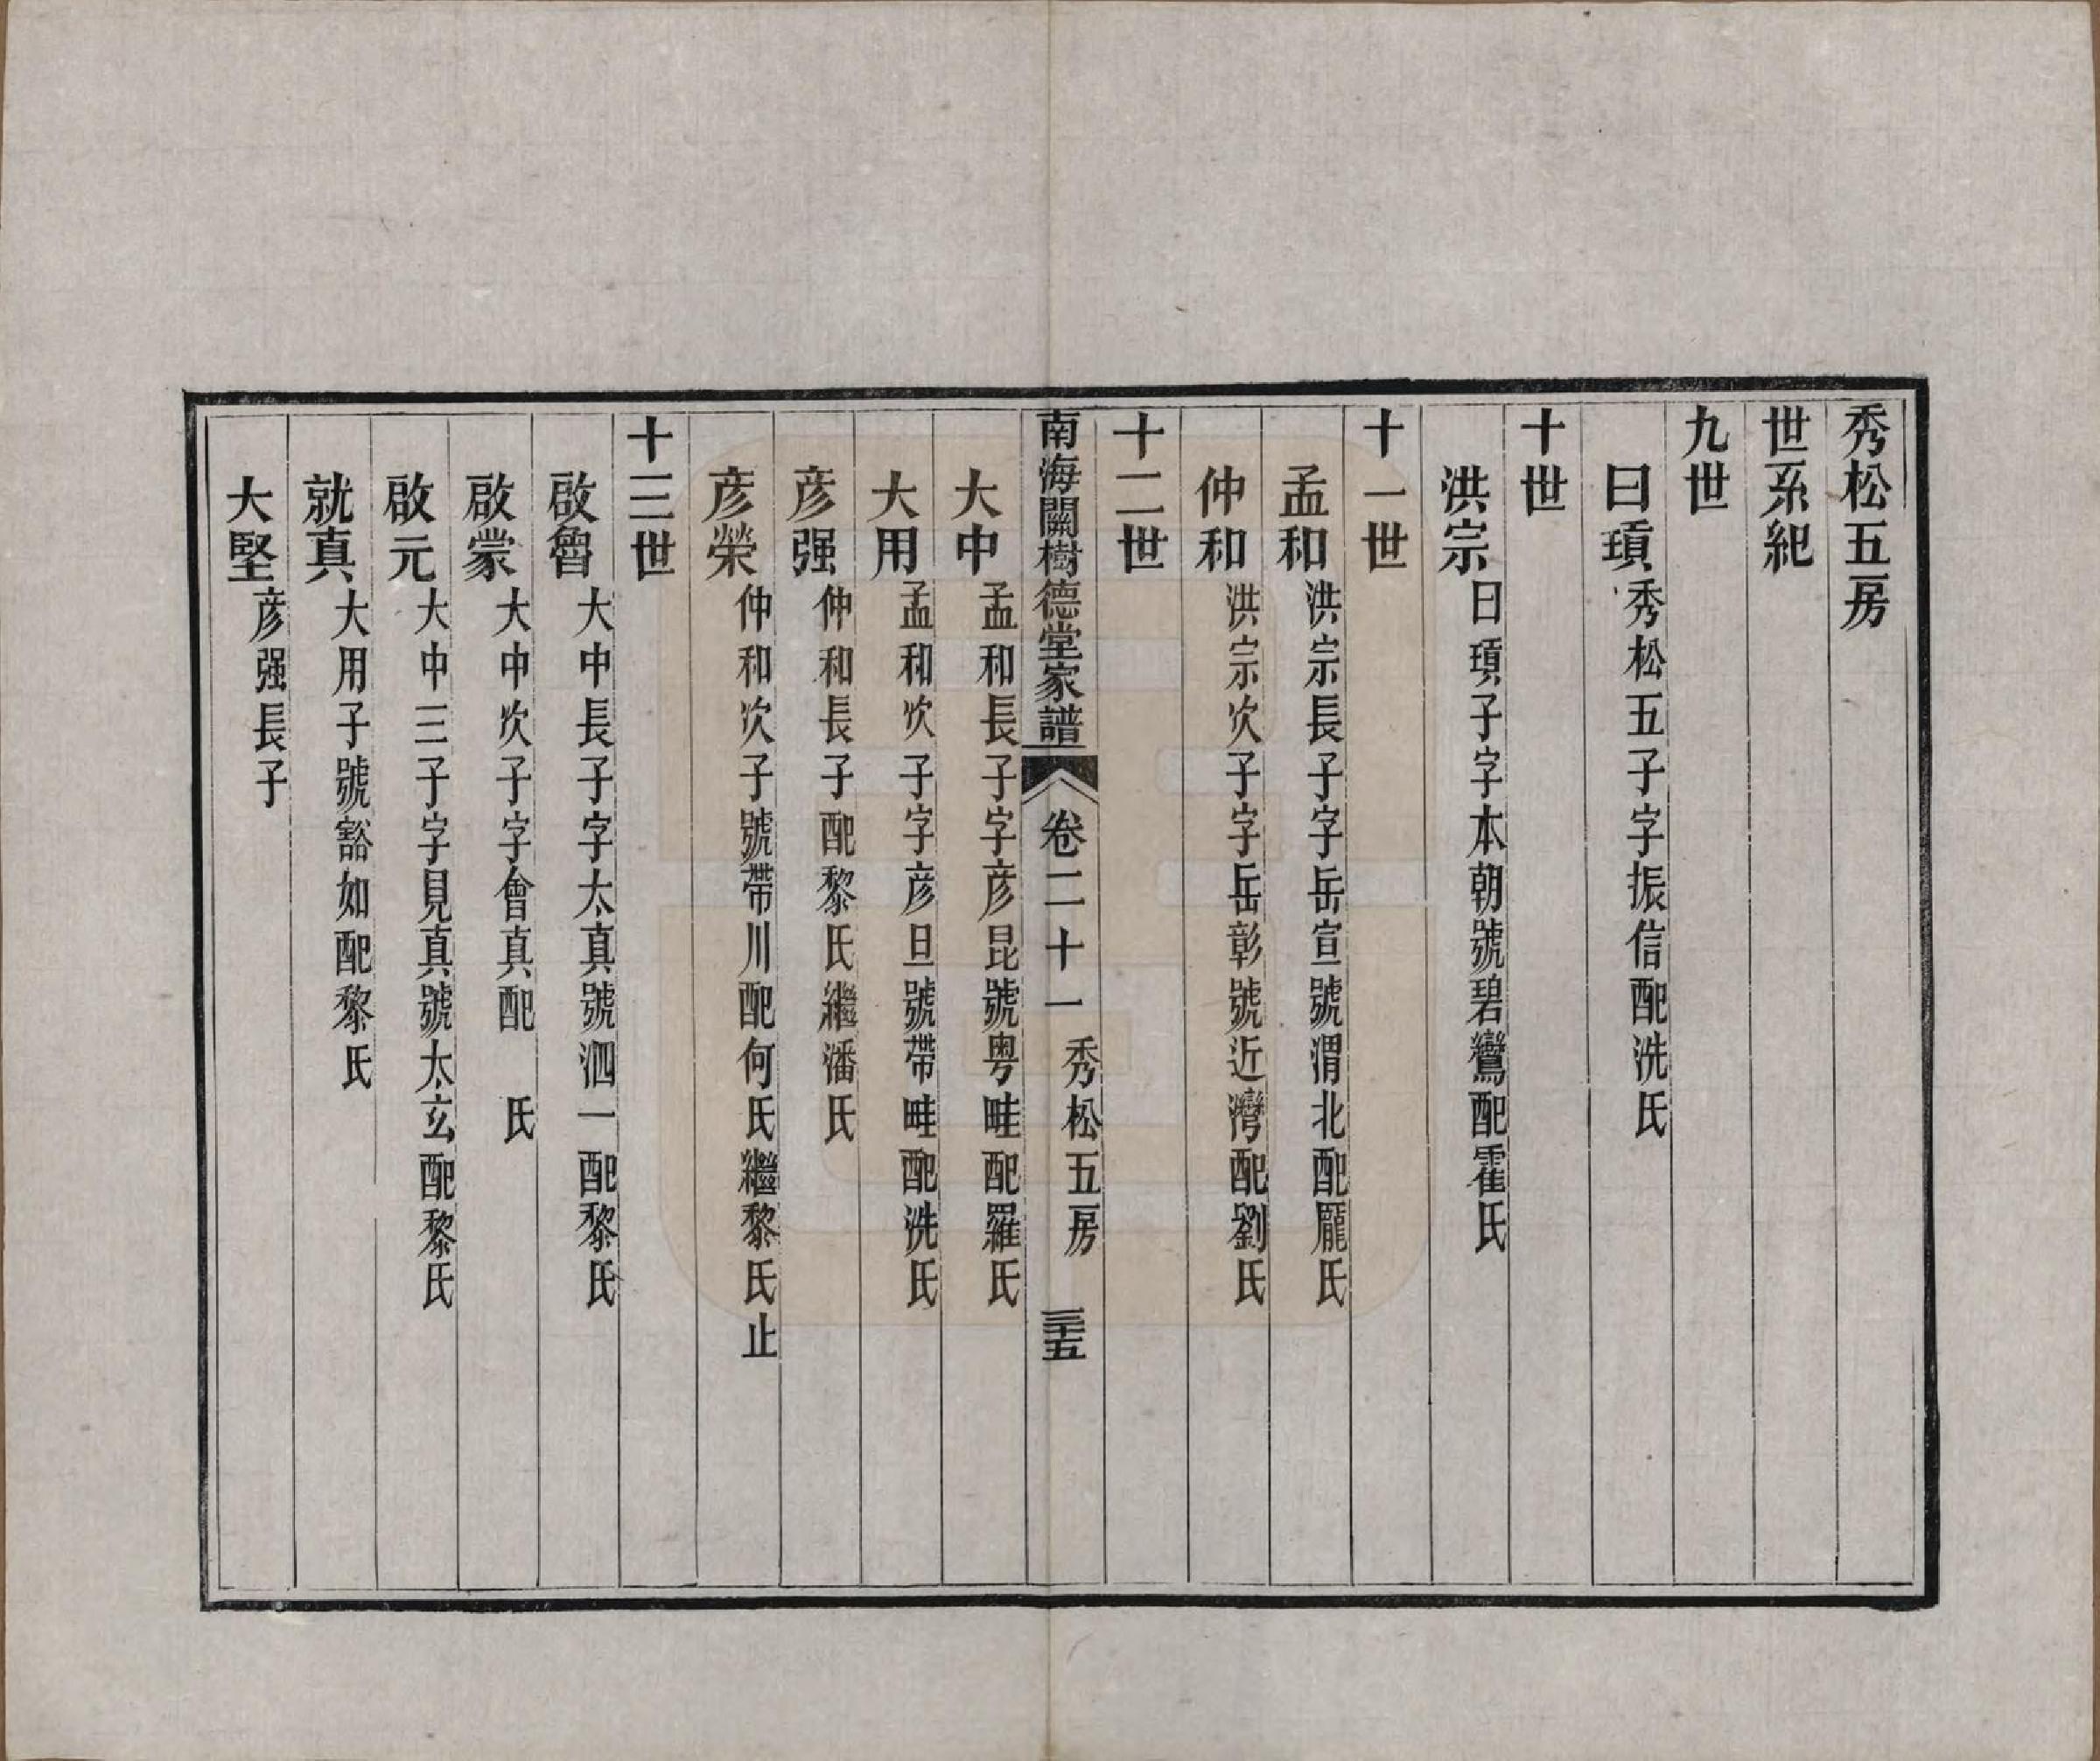 秀松五房
世系紀
九世
曰瑣秀松五子字振信配冼氏
十世
洪宗曰瑣子字本朝號碧鸞配霍氏
十一世
孟和洪宗長子字岳宣號渭北配龐氏
仲和洪宗次子字岳彰號近灣配劉氏
十二世
南海關樹德堂家譜 卷二十一 秀松五房 三十五
大中孟和長子字彦昆號粤畦配羅氏
大用孟和次子字彦旦號帶畦配冼氏
彦强仲和長子配黎氏繼潘氏
彦榮仲和次子號帶川配何氏繼黎氏止
十三世
啟魯大中長子字太真號泗一配黎氏
啟蒙大中次子字會真配 氏
啟元大中三子字見真號太玄配黎氏
就真大用子號豁如配黎氏
大堅彦强長子